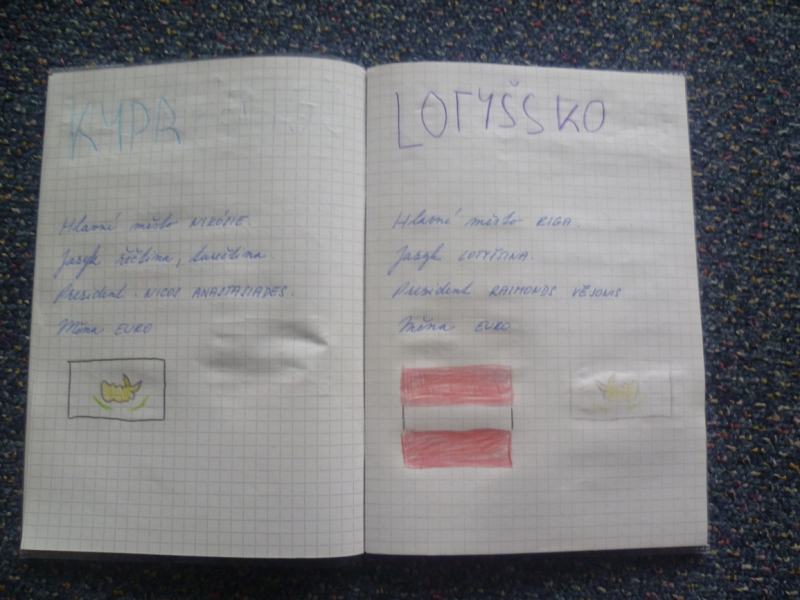 KYPR
Hlavní město NIKÓSIE.
Jazyk řečtina, turečtina
Prezident. NICOS ANASTASIADES.
Měna EURO
LOTYŠSKO
Hlavní město RIGA.
Jazyk LOTYŠTINA.
Prezident RAIMONDS VĒJONIS
Měna EURO